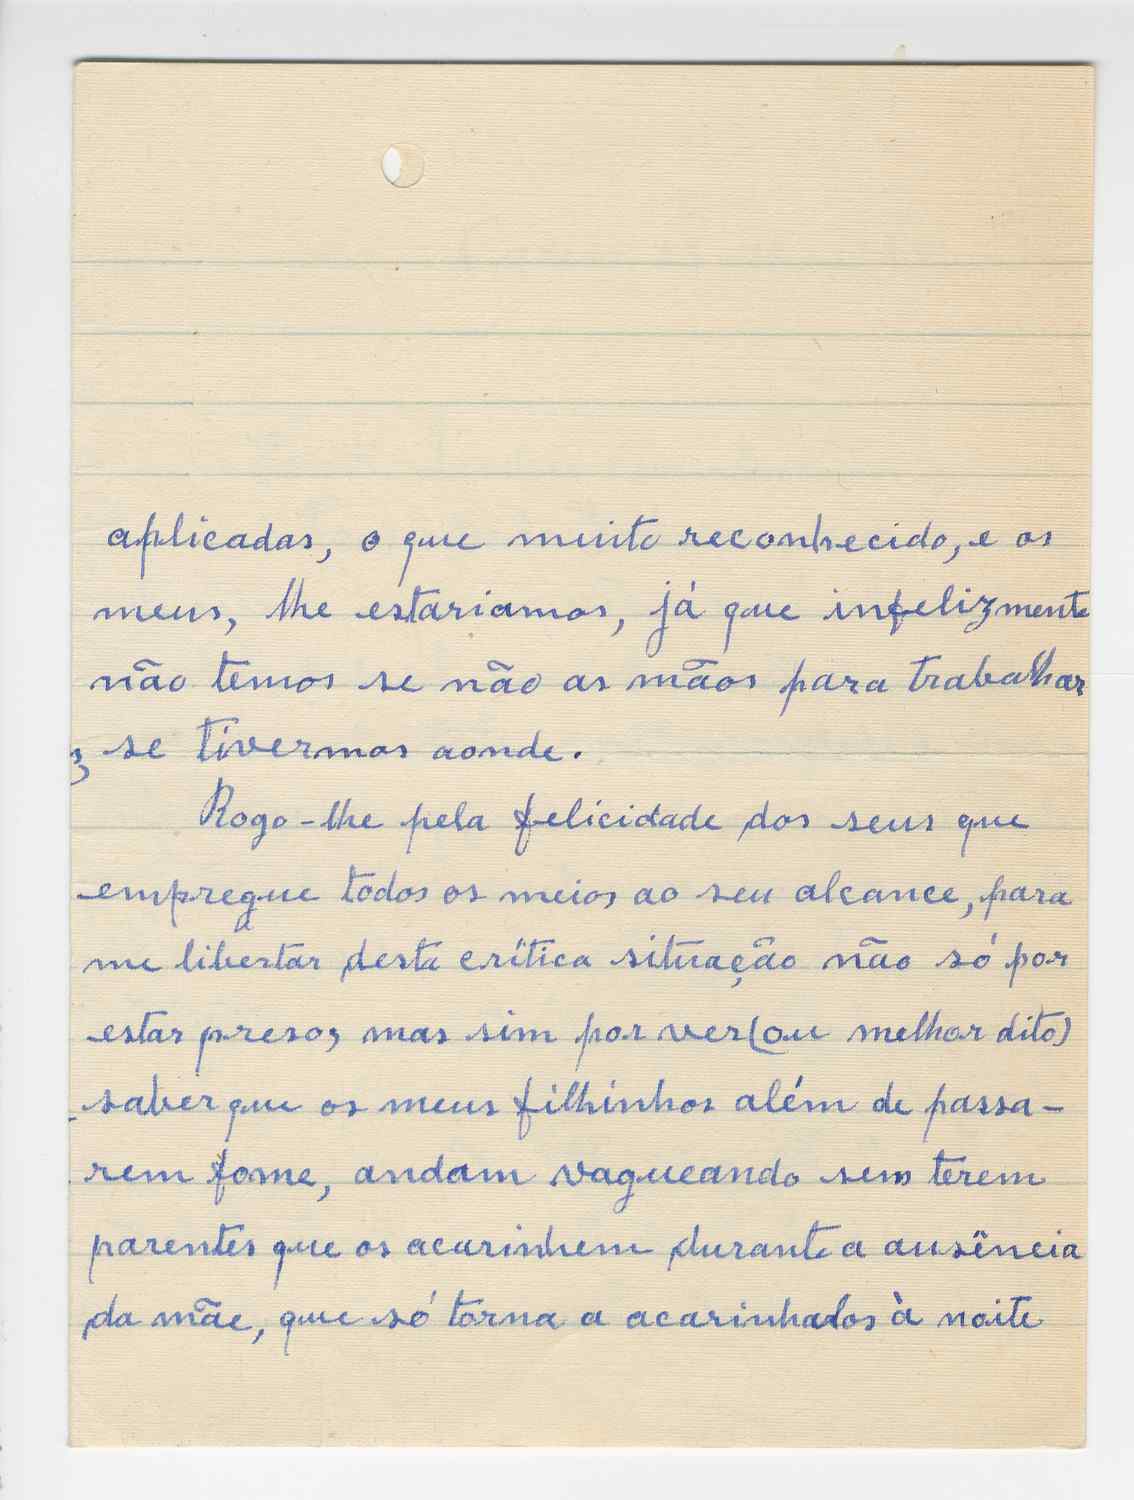 aplicadas, o que muito reconhecido, e os
meus, lhe estariamos, já que infelizmente
não temos se não as mãos para trabalhar
se tivermos aonde.
Rogo-lhe pela felicidade dos seus que
empregue todos os meios ao seu alcance, para
me libertar desta crítica situação não só por
estar preso, mas sim por ver (ou melhor dito)
saber que os meus filhinhos além de passa-
rem fome, andam vagueando sem terem
parentes que os acarinhem durante a ausência
da mãe, que só torna a acarinhalos à noite